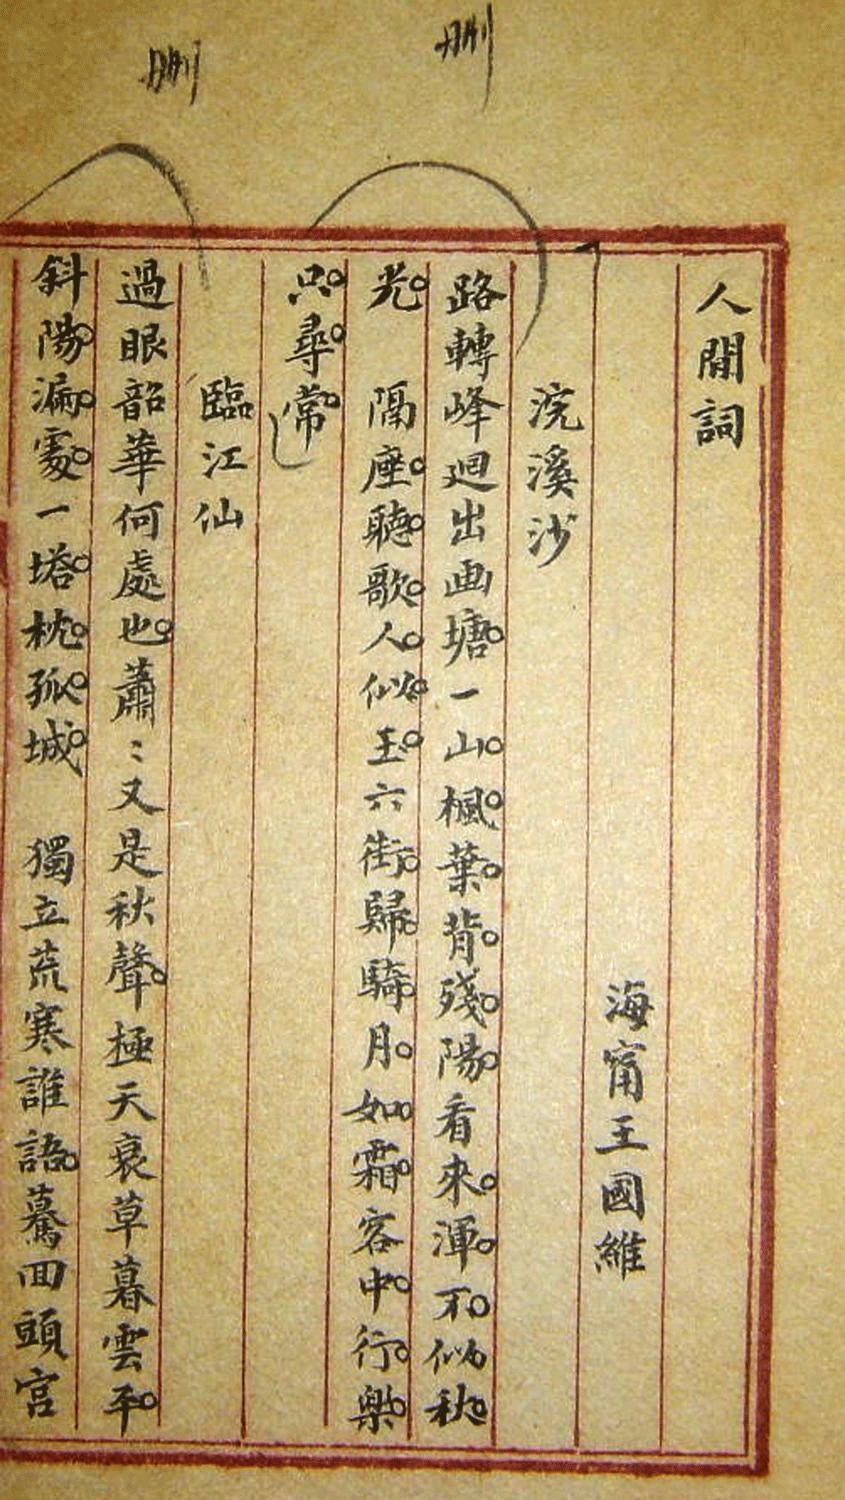 删
删
人間詞
海甯王國維
浣溪沙
路轉峰迴出画塘一山楓葉背殘陽看來渾不似秋
光　隔座聽歌人似玉六街歸騎月如霜客中行樂
只尋常
臨江仙
過眼韶華何處也蕭〻又是秋聲極天衰草暮雲平
斜陽漏處一塔枕孤城　獨立荒寒誰語驀回頭宫